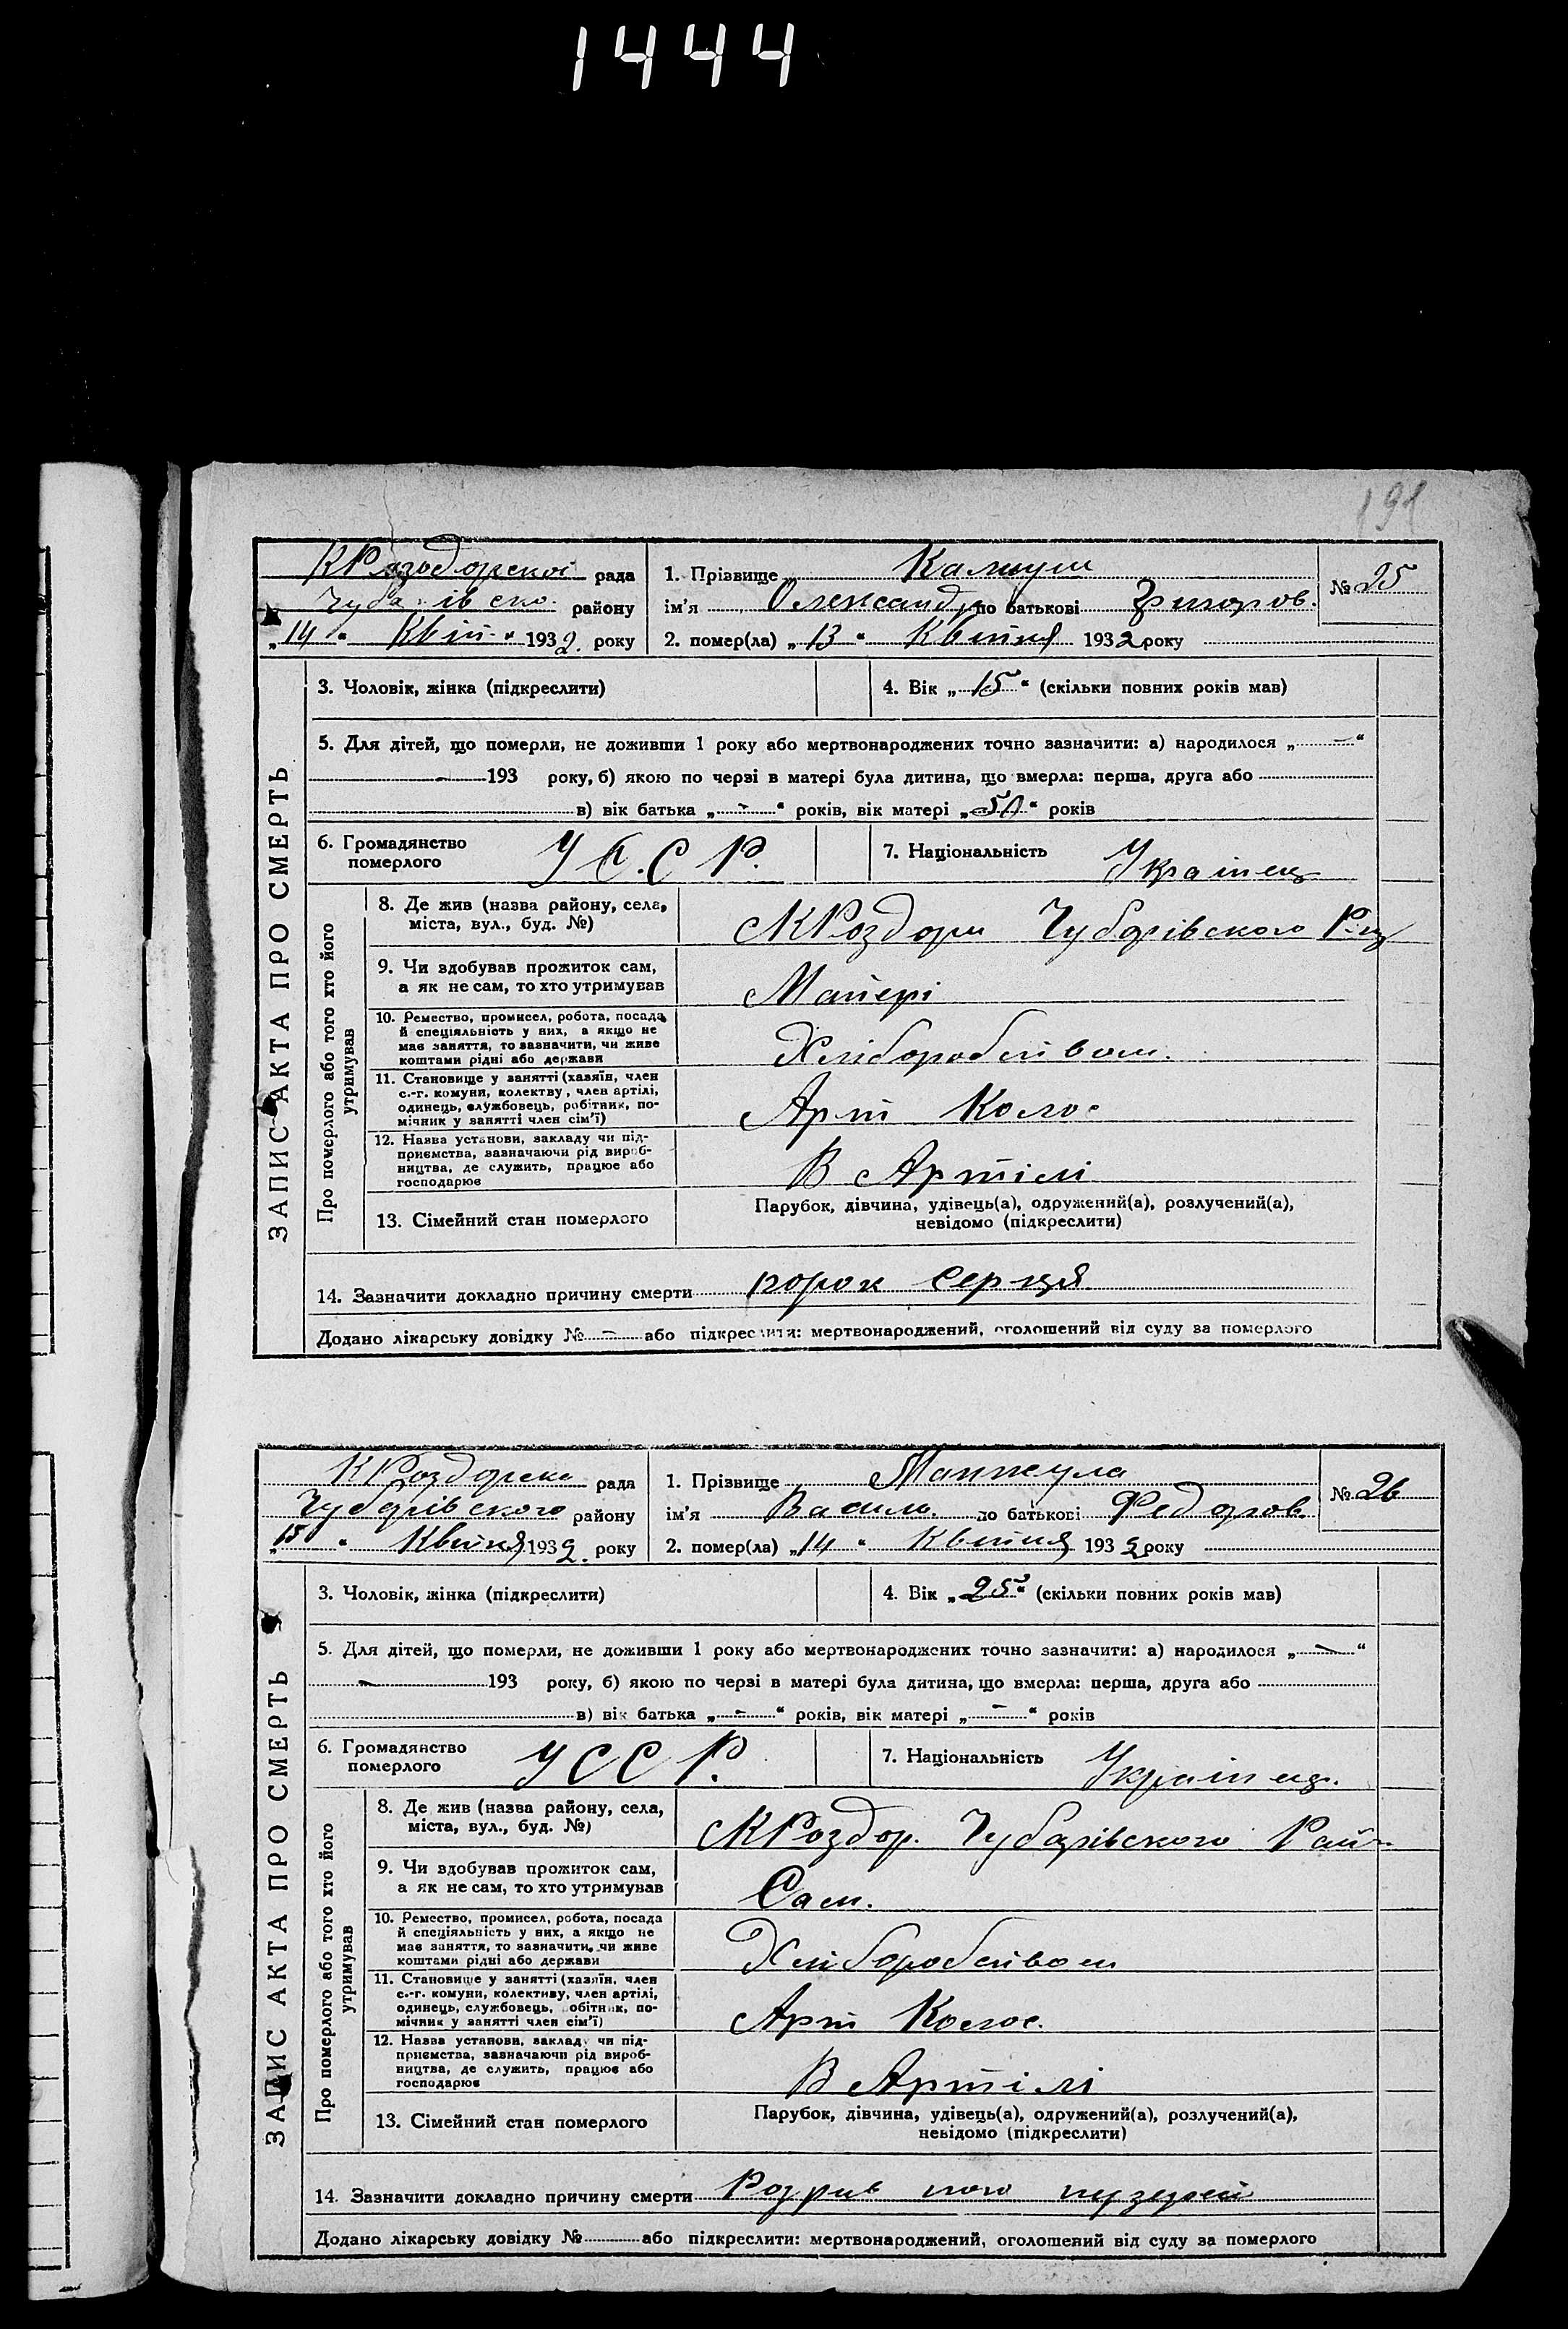 1444
191
КРоздорскої рада
Чубарівско району
„14“ Квіт. 1932. року
1. Прізвище Калнуш
№ 25
ім'я Олександр по батькові Григоров.
2. помер(ла) „13“ Квітня 1932 року
ЗАПИС АКТА ПРО СМЕРТЬ
3. Чоловік, жінка (підкреслити)
4. Вік „15“ (скільки повних років мав)
5. Для дітей, що померли, не доживши 1 року або мертвонароджених точно зазначити: а) народилося „—“
— 193 року, б) якою по черзі в матері була дитина, що вмерла: перша, друга або
в) вік батька „-“ років, вік матері „50“ років
6. Громадянство
померлого
У С.С Р.
7. Національність Українец
Про померлого або того хто його
утримував
8. Де жив (назва району, села,
міста, вул., буд. №)
КРоздори Чубарівского
9. Чи здобував прожиток сам,
а як не сам, то хто утримував
Матері
10. Ремество, промисел, робота, посада
й спеціяльність у них, а якщо не
має заняття, то зазначити, чи живе
коштами рідні або держави
Хліборобством.
11. Становище у занятті (хазяїн, член
с.-г. комуни, колектву, член артілі,
одинець, службовець, робітник, по-
мічник у занятті член сім'ї)
Арт Колос
12. Назва установи, закладу чи під-
приємства, зазначаючи рід вироб-
ництва, де служить, працює або
господарює
В Артілі
13. Сімейний стан померлого
Парубок, дівчина, удівець(а), одружений(а), розлучений(а),
невідомо (підкреслити)
14. Зазначити докладно причину смерти порок серця
Додано лікарську довідку № — або підкреслити: мертвонароджений, оголошений від суду за померлого
КРоздорска рада
Чубарівского району
„15“ Квітня 1932. року
1. Прізвище Манжула
№ 26
ім'я Василь. по батькові Федоров.
2. помер(ла) „14“ Квітня 1932 року
ЗАПИС АКТА ПРО СМЕРТЬ
3. Чоловік, жінка (підкреслити)
4. Вік „25“ (скільки повних років мав)
5. Для дітей, що померли, не доживши 1 року або мертвонароджених точно зазначити: а) народилося „—“
— 193 року, б) якою по черзі в матері була дитина, що вмерла: перша, друга або
в) вік батька „-“ років, вік матері „-“ років
6. Громадянство
померлого
У С С Р.
7. Національність Українец.
Про померлого або того хто його
утримував
8. Де жив (назва району, села,
міста, вул., буд. №)
КРоздор. Чубарівского Рай
9. Чи здобував прожиток сам,
а як не сам, то хто утримував
Сам.
10. Ремество, промисел, робота, посада
й спеціяльність у них, а якщо не
має заняття, то зазначити, чи живе
коштами рідні або держави
Хліборобством
11. Становище у занятті (хазяїн, член
с.-г. комуни, колективу, член артілі,
одинець, службовець, робітник, по-
мічник у занятті член сім'ї)
Арт Колос.
12. Назва установи, закладу чи під-
приємства, зазначаючи рід вироб-
ництва, де служить, працює або
господарює
В Артілі
13. Сімейний стан померлого
Парубок, дівчина, удівець(а), одружений(а), розлучений(а),
невідомо (підкреслити)
14. Зазначити докладно причину смерти Розрив
Додано лікарську довідку № або підкреслити: мертвонароджений, оголошений від суду за померлого